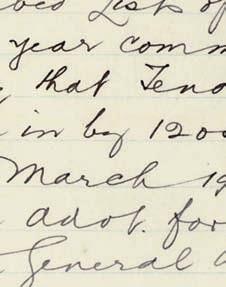 List of
year comm
that Teno
in by 1200
March 19
adot. for
General